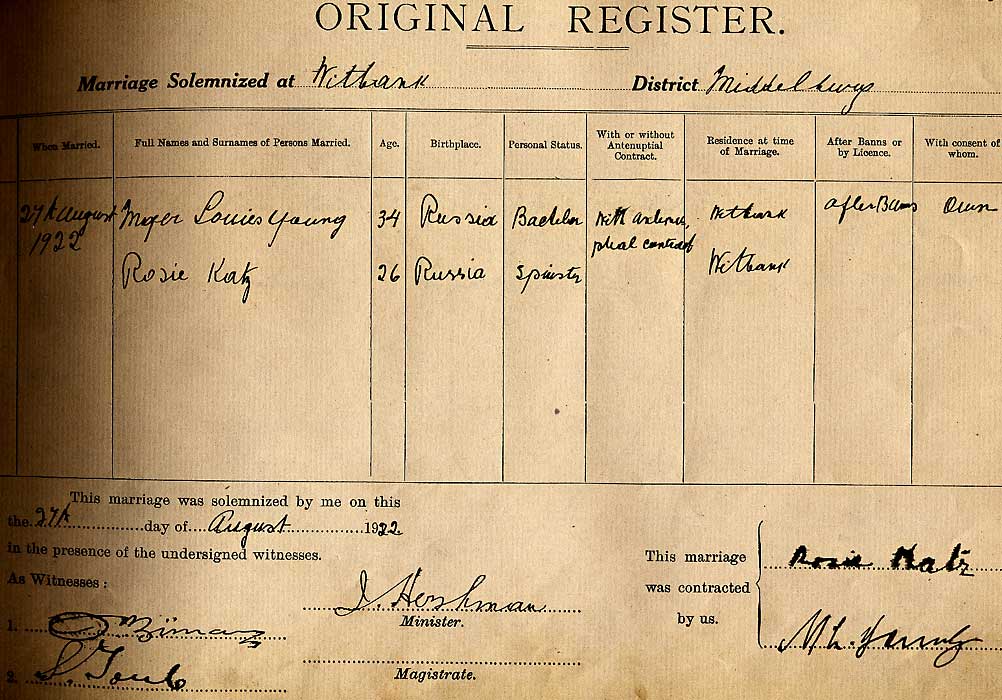 ORIGINAL REGISTER.
Marriage Solemnized at Witbank District Middelburg
When Married. Full Names and Surnames of Persons Married. Age. Birthplace. Personal Status. With or without Antenuptial Contract. Residence at time of Marriage. After Banns or by Licence. With consent of whom.
27th August 1922 Meyer Louies Young 34 Russia Bachelor With antenuptial contract Witbank After Banns Own
Rosie Katz 26 Russia Spinster Witbank
This marriage was solemnized by me on this
the 27th day of August 1922
in the presence of the undersigned witnesses.
As Witnesses :
I. Hershman
Minister.
1.
2. S. Toub
Magistrate.
This marriage
was contracted
by us.
Rosie Katz
M L. Young